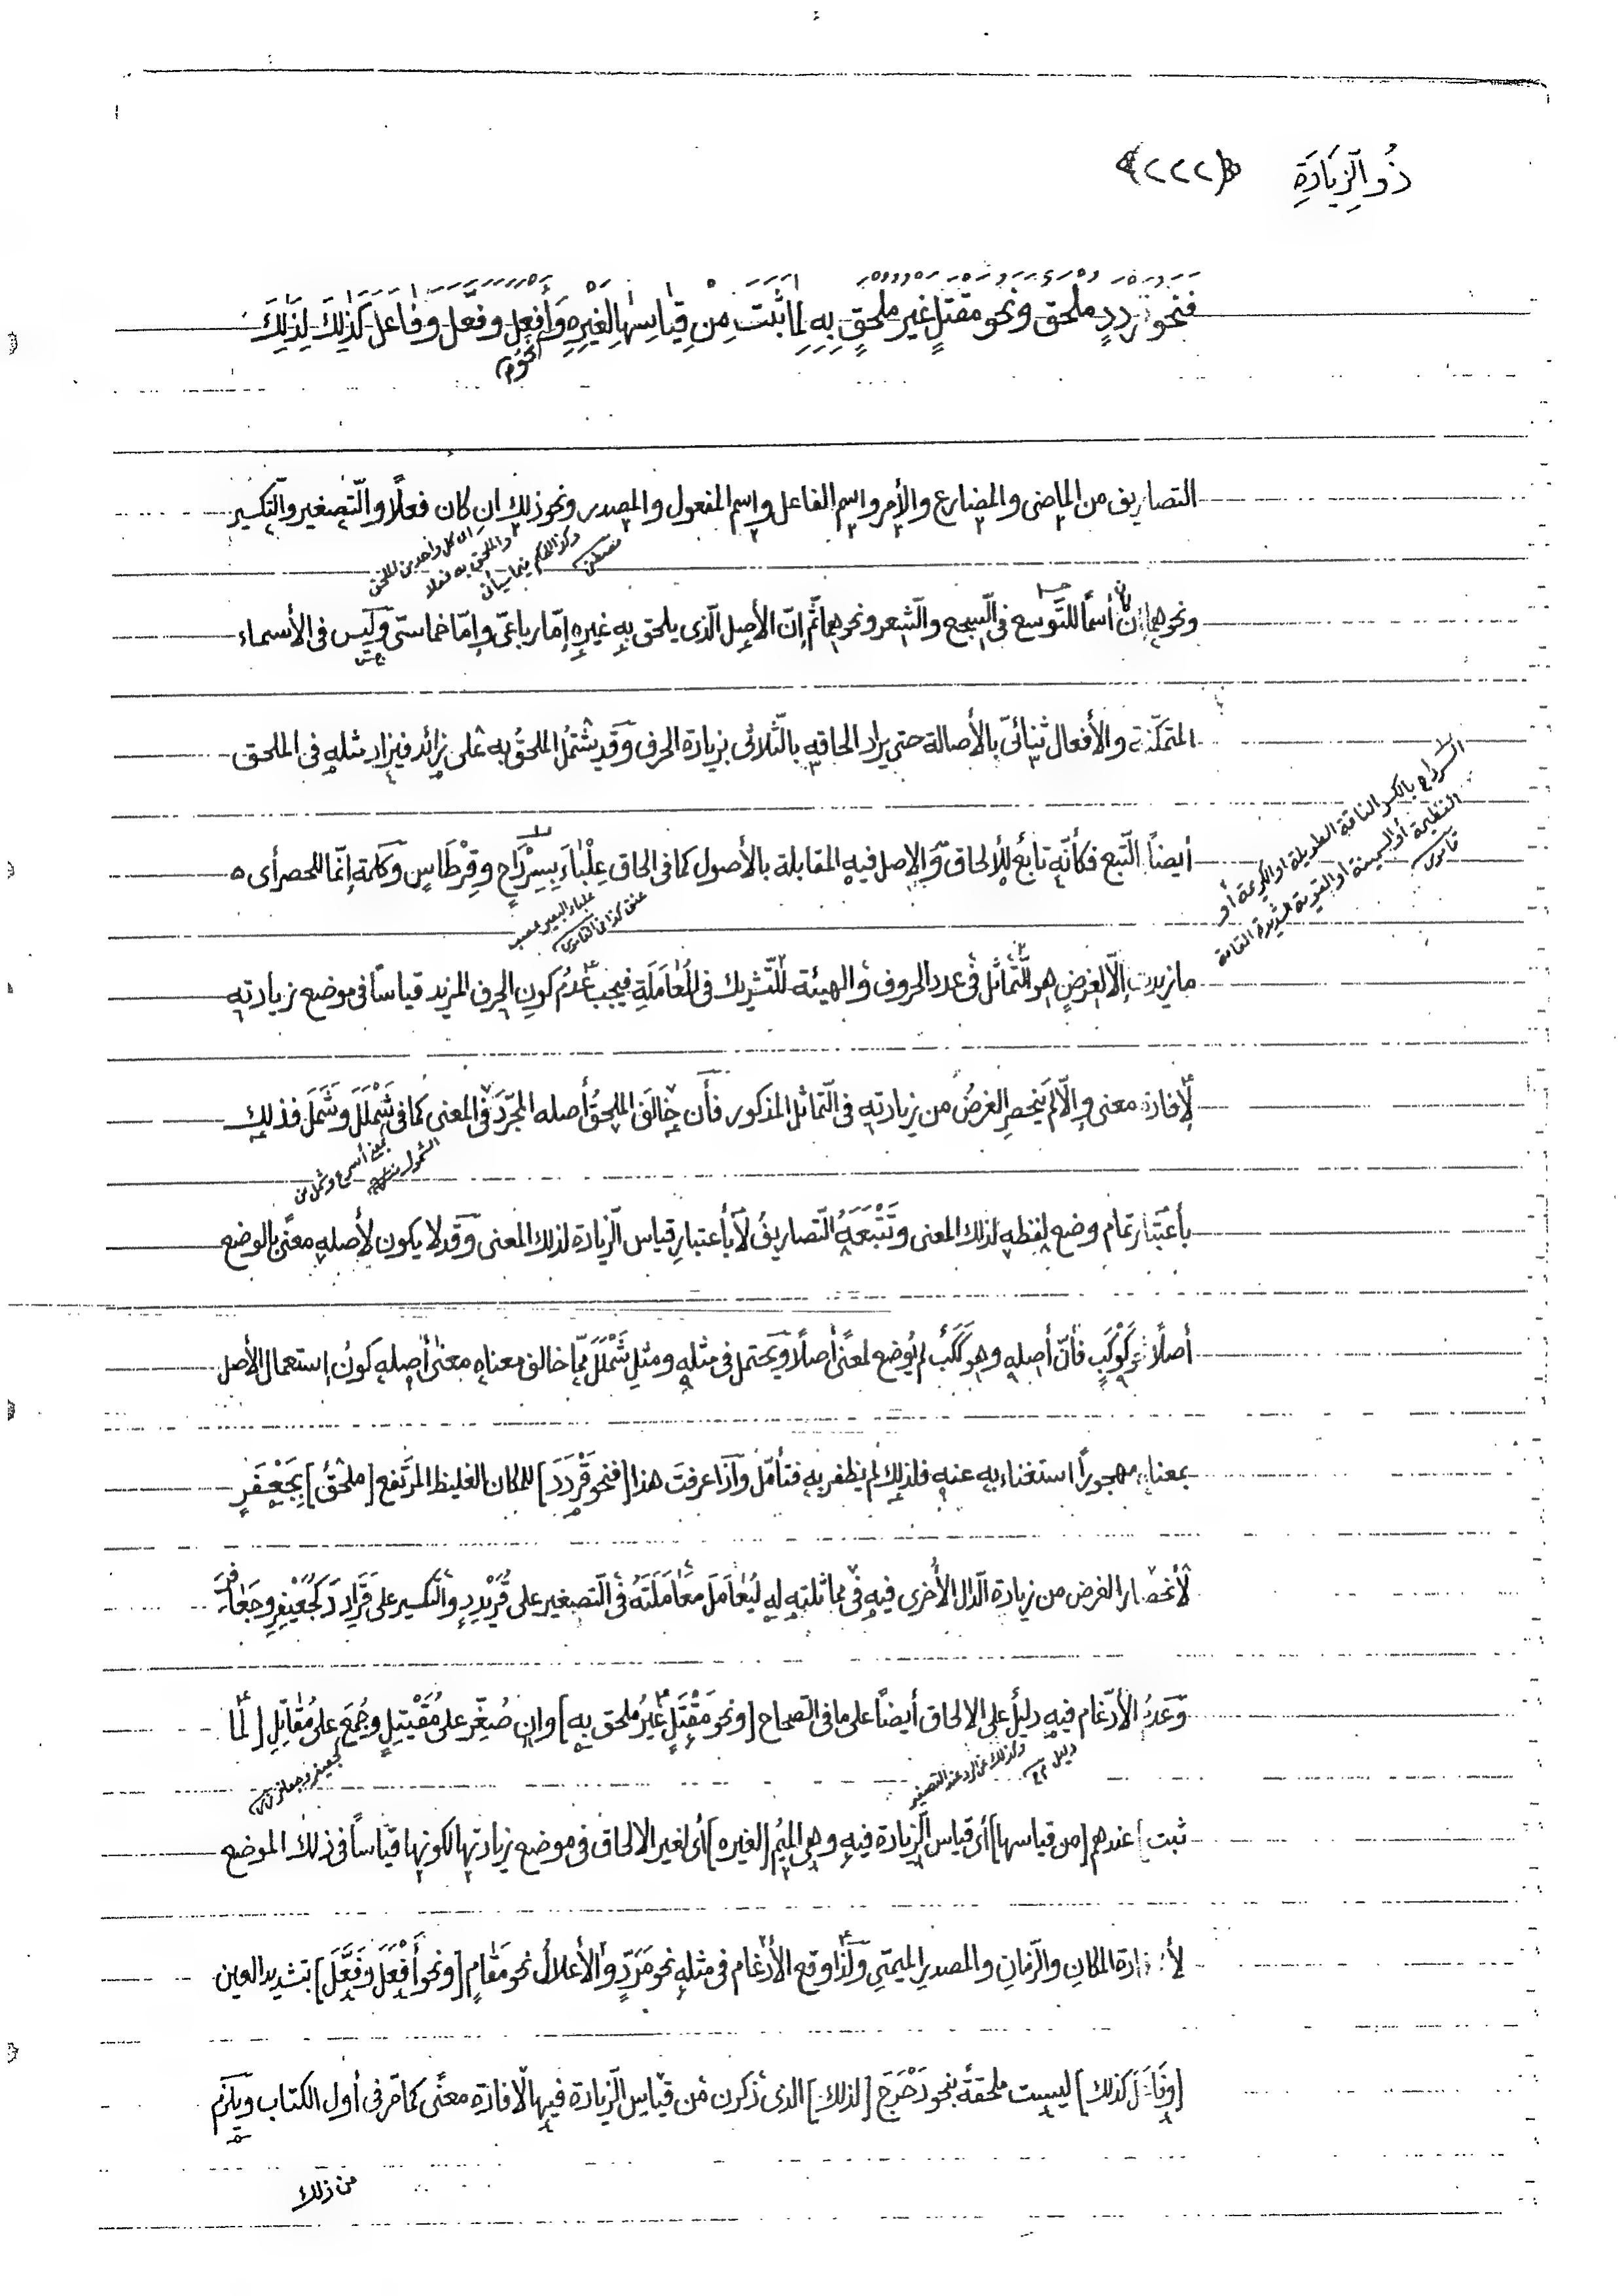 ذُو الزِّيَادَةِ ﴿٢٢٢﴾
فنحو قردد ملحق ونحو مقتل غير ملحق به لما ثبت من قياسها لغيره ونحو أفعل وفعّل وفاعل كذلك لذلك
التصاريف من الماضى والمضارع والأمر واسم الفاعل واسم المفعول والمصدر ونحو ذلك ان كان فعلًا والتّصغير والتّكسير
ونحوهما إن كان أسمًا للتّوسع فى السّجع والشّعر ونحوهما ثمّ إنّ الأصل الّذى يلحق به غيره إمّا رباعىّ وإمّا خماسىّ وليس فى الأسماء
المتمكّنة والأفعال ثنائىّ بالأصالة حتى يراد الحاقه بالثّلاثى بزيادة الحرف وقد يشتمل الملحق به على زائد فيزاد مثله فى الملحق
أيضاً بالتّبع فكأنّه تابع للألحاق والاصل فيه المقابلة بالأصول كما فى الحاق عِلْبَاءَ بِسِرْدَاحٍ وقِرْطَاسٍ وكلمة إنّما للحصر أى
ما زيدت إلّا لغرضٍ هو التّماثل فى عدد الحروف والهيئة للتّشريك فى المُعَامَلَةِ فيجب عدمُ كونِ الحرف المزيد قياسًا فى موضع زيادته
لأفادة معنى وإلّا لم ينحصر الغرضُ من زيادته فى التّماثل المذكور فأن خالَفَ الملحقُ أصله المجرّدَ فى المعنى كما فى شَمْلَلَ وشَمَلَ فذلك
بأعتبار تمام وضع لفظه لذلك المعنى وتَتْبَعَهُ التّصاريفُ لا بأعتبار قياس الزّيادة لذلك المعنى وقد لا يكون لأصله معنًى بالوضع
أصلًا نحو كَوْكَبٍ فأنّ أصله وهو كَكَبٌ لم يُوضع لمعنًى أصلًا ويحتمل فى مثله ومثل شَمْلَلَ ممّا خالف معناه معنى أصله كونُ إستعمال الأصل
بمعناه مهجوراً استغناء به عنه فلذلك لم يظفر به فتأمّل وإذا عرفت هذا [فنحو قَرْدَدَ] للمكان الغليظ المرتفع [ملحقٌ] بِجَعْفَرٍ
لأنحصار الغرض من زيادة الدّال الأخرى فيه فى مماثلته له ليُعَامَلَ مُعَامَلَتَهُ فى التّصغير على قُرَيْدِدٍ والتّكسير على قَرَادِدَ كَجُعَيْفِرٍ وجَعَافِرَ
وعدمُ الأدّغام فيه دليلٌ على الالحاق أيضاً على ما فى الصّحاح [ونحو مَقْتَلٍ غيرُ ملحق به] وإن صُغّر على مُقَيْتِلٍ وجُمِعَ على مَقَاتِلِ [لما
ثبت] عندهم [من قياسها] أى قياس الزّيادة فيه وهى الميمُ [لغيره] أى لغير الالحاق فى موضع زيادتها لكونها قياساً فى ذلك الموضع
لأفادة المكانِ والزّمانِ والمصدرِ الميمىّ ولذا وقع الأدّغام فى مثله نحو مَرَدٍّ والأعلال نحو مَقَامٍ [ونحو أَفْعَلَ وفَعَّلَ] بتشديد العين
[وفَاعَلَ كذلك] ليست ملحقةً بنحو دَحْرَجَ [لذلك] الذى ذكرن من قياس الزّيادة فيها لافادة معنًى كما مرّ فى أول الكتاب ويلزم
من ذلك
السّرداح بالكسر الناقة الطويلة او الكريمة أو
العظيمة أو السمينة او القوية الشديدة التامة
قاموس
علباء البعير عصب
عنق كذا فى القاموس
بمعنى أسرع وشمل من
الشمول
كجعيفر وجعافر